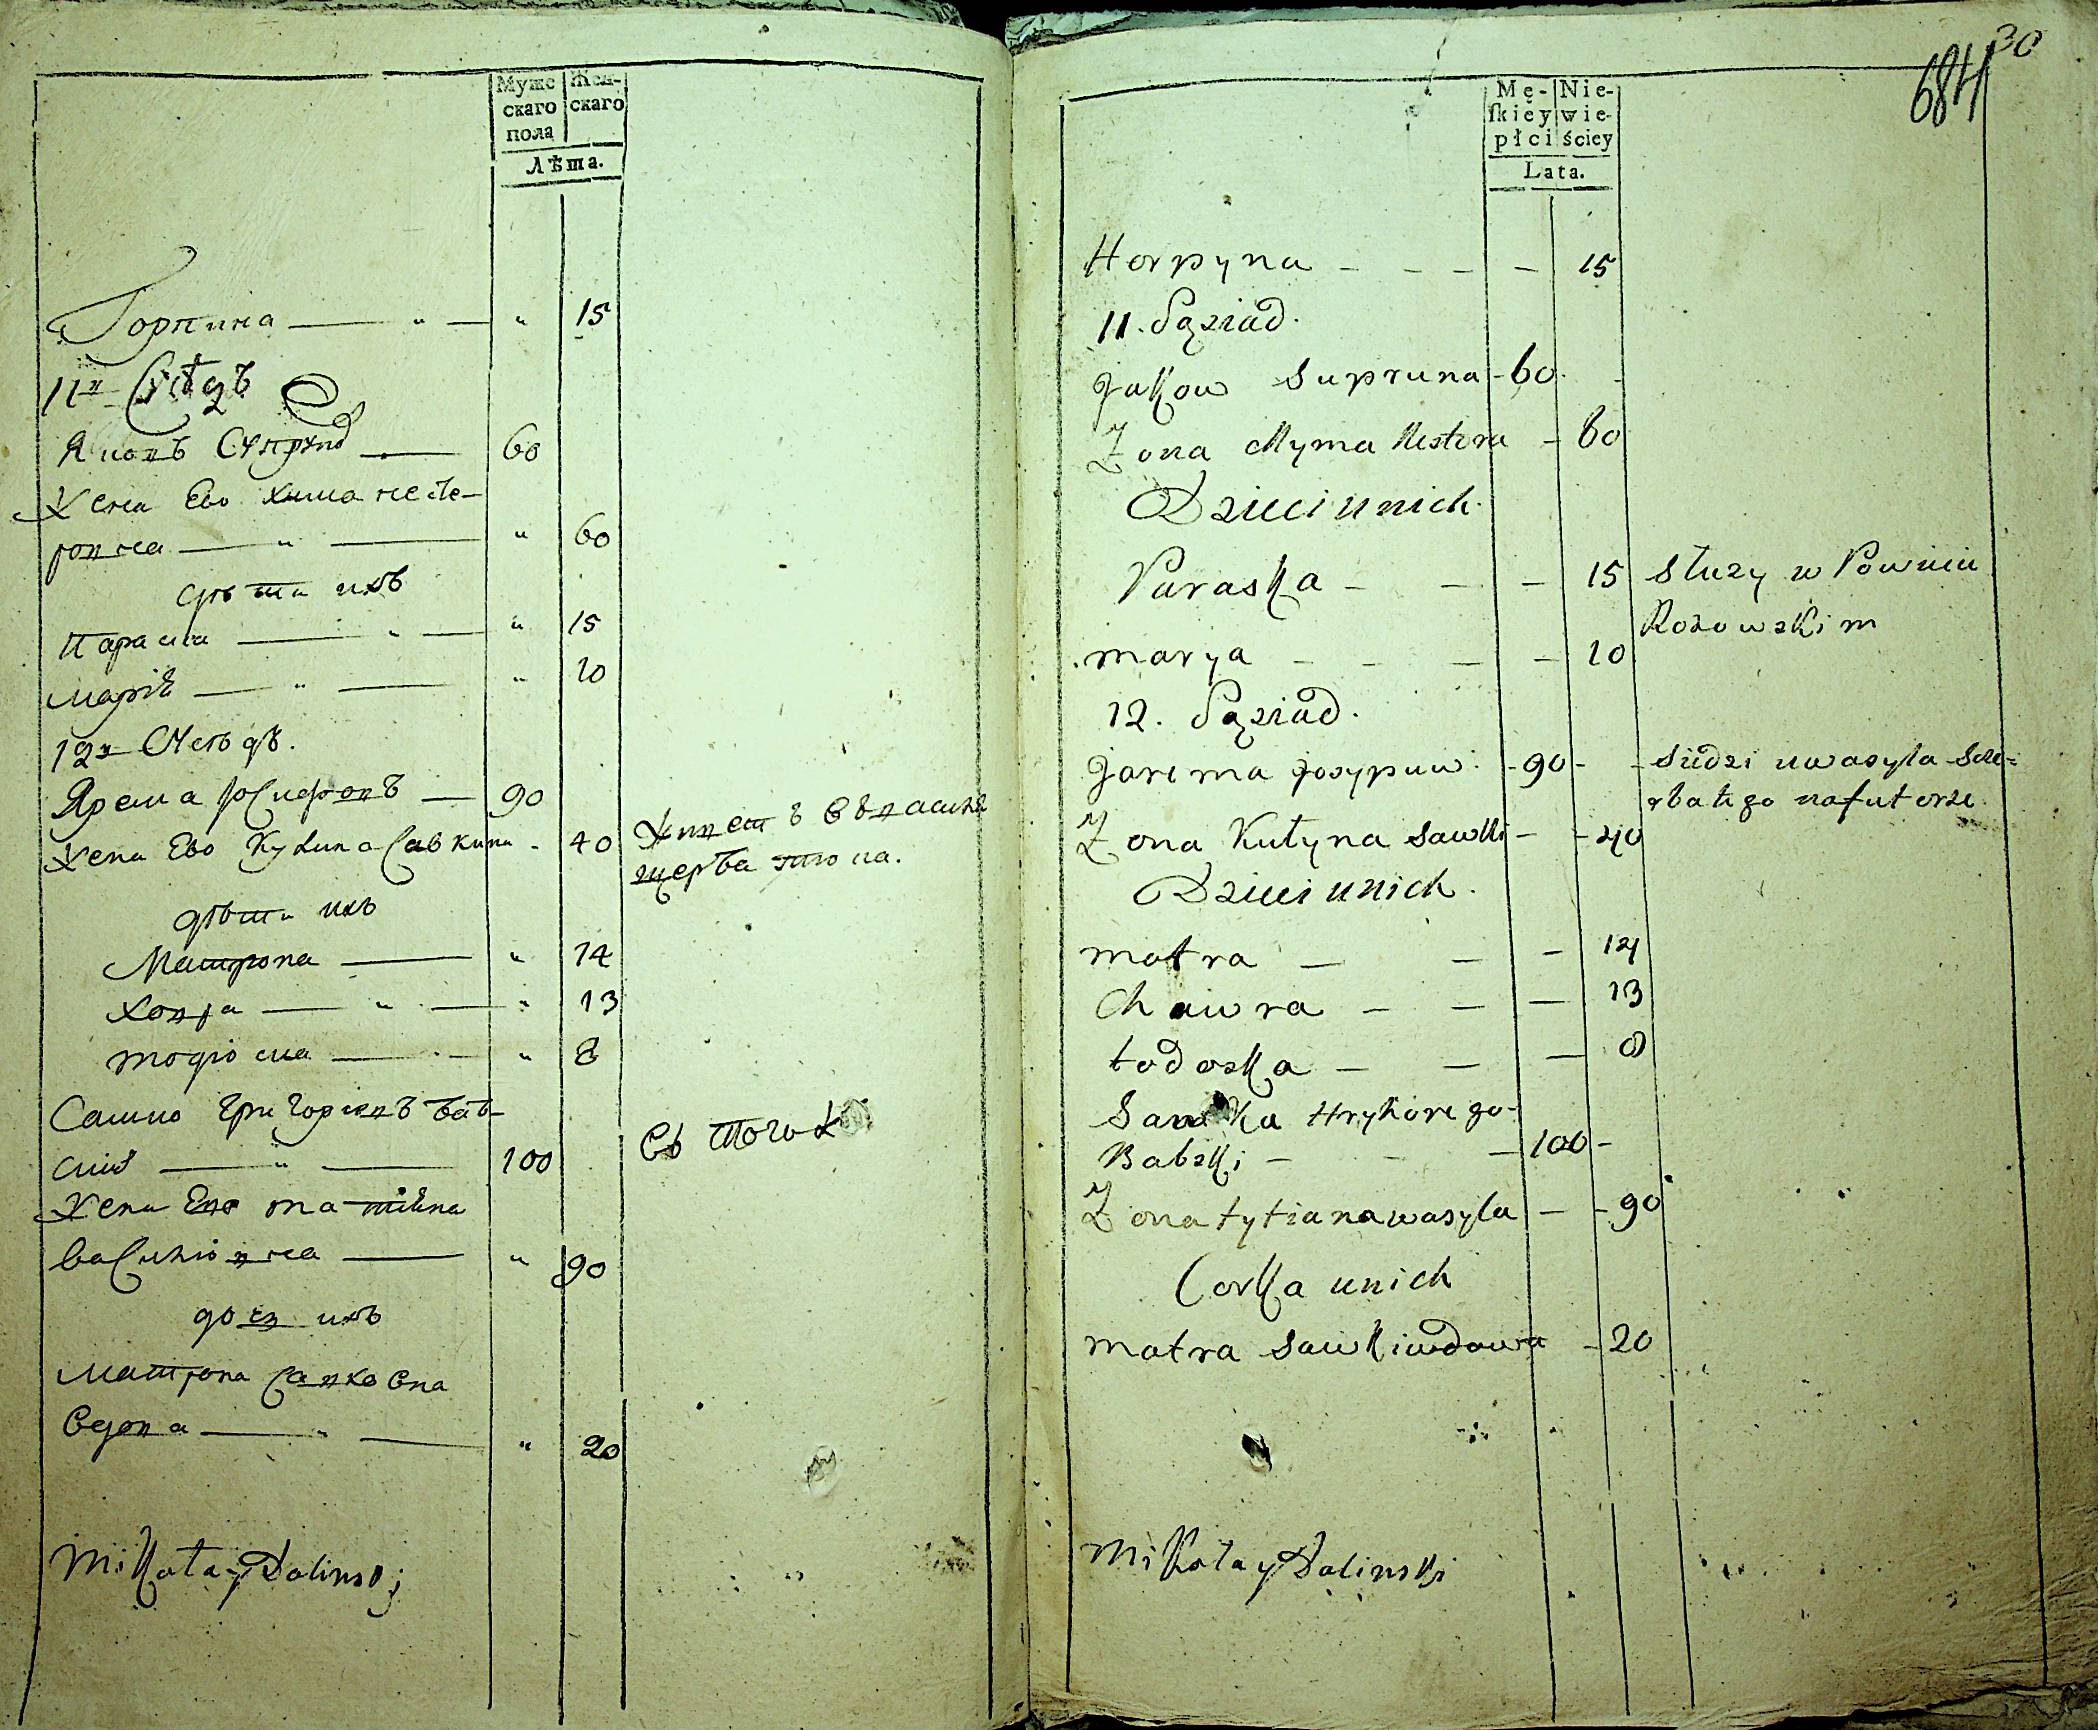 Муже
скаго
пола
Жен-
скаго
Лѣта.
Горпина — " — " 15
11й Сусѣдъ
Яковъ Супрунъ — 60
Жена Ево Хима несте-
ровна — " — " 60
дѣти ихъ
Параска — " — " 15
Маріѣ — " — " 10
12й Сусѣдъ.
Ярема Юсиповъ — 90
Жена Ево Кулина Савкина - 40
Живетъ въ Василя
щербатюка.
дѣти ихъ
Матрона — " 14
Ховра — " — " 13
тодіоска — " 8
Самко Григоріевъ баб-
скій — " — 100
Съ того ж
Жена Ево татіяна
Василіовна — " 90
дочь ихъ
Матрона Савковна
Вдова — " — " 20
Mikołay Dolinskj
684 30
Mę-
skiey
płci
Nie-
wie-
ściey
Lata.
Horpyna - - - - 15
11. Sąsiad.
Jakow Supruna - 60 -
Zona Chyma Nestera - 60
Dzieci u nich.
Paraska - - - 15 służy w Powiciu
Rozowskim
marya - - - - 10
12. Sąsiad.
Jarema Josypuw - 90 - - Siedzi u wasyla Scze=
rbatego na futorze
Zona Kulyna Sawki - - 40
Dzieci u nich.
matra - - - 14
Chawra - - - 13
todoska - - - 8
Samka Hryhorego-
Babski - - - 100 -
Zona tytiana wasyla - - 90
Corka u nich
matra Sawki wdowa - 20
Mikołay Dolinski